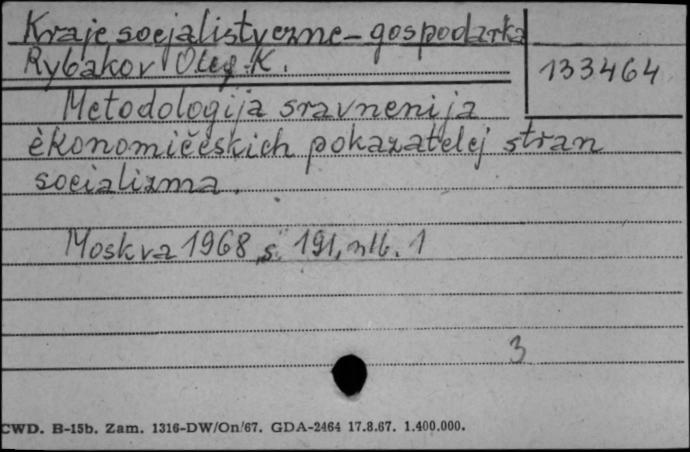 Kraje socjalistyczne - gospodarka
Rybakov Oleg K.
133464
Metodologija sravnenija
èkonomičeskich pokazatelej stran
socializma.
Moskva 1968, s. 191, nlb. 1
3
CWD. B-15b. Zam. 1316-DW/On/67. GDA-2464 17.8.67. 1.400.000.